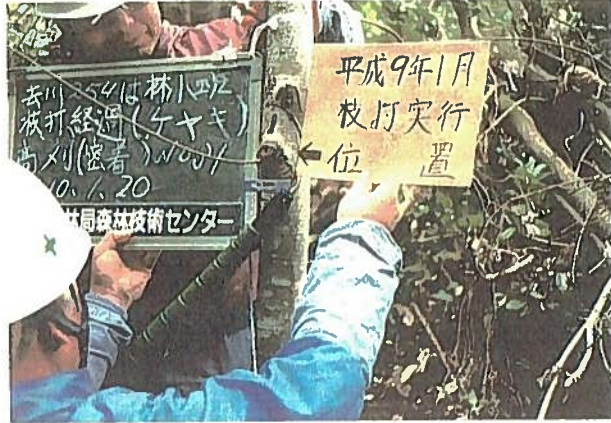 去川254は林小班
枝打経過(ケヤキ)
高刈(密着)No01
10.1.20
林局森林技術センター
平成9年1月
枝打実行
位置